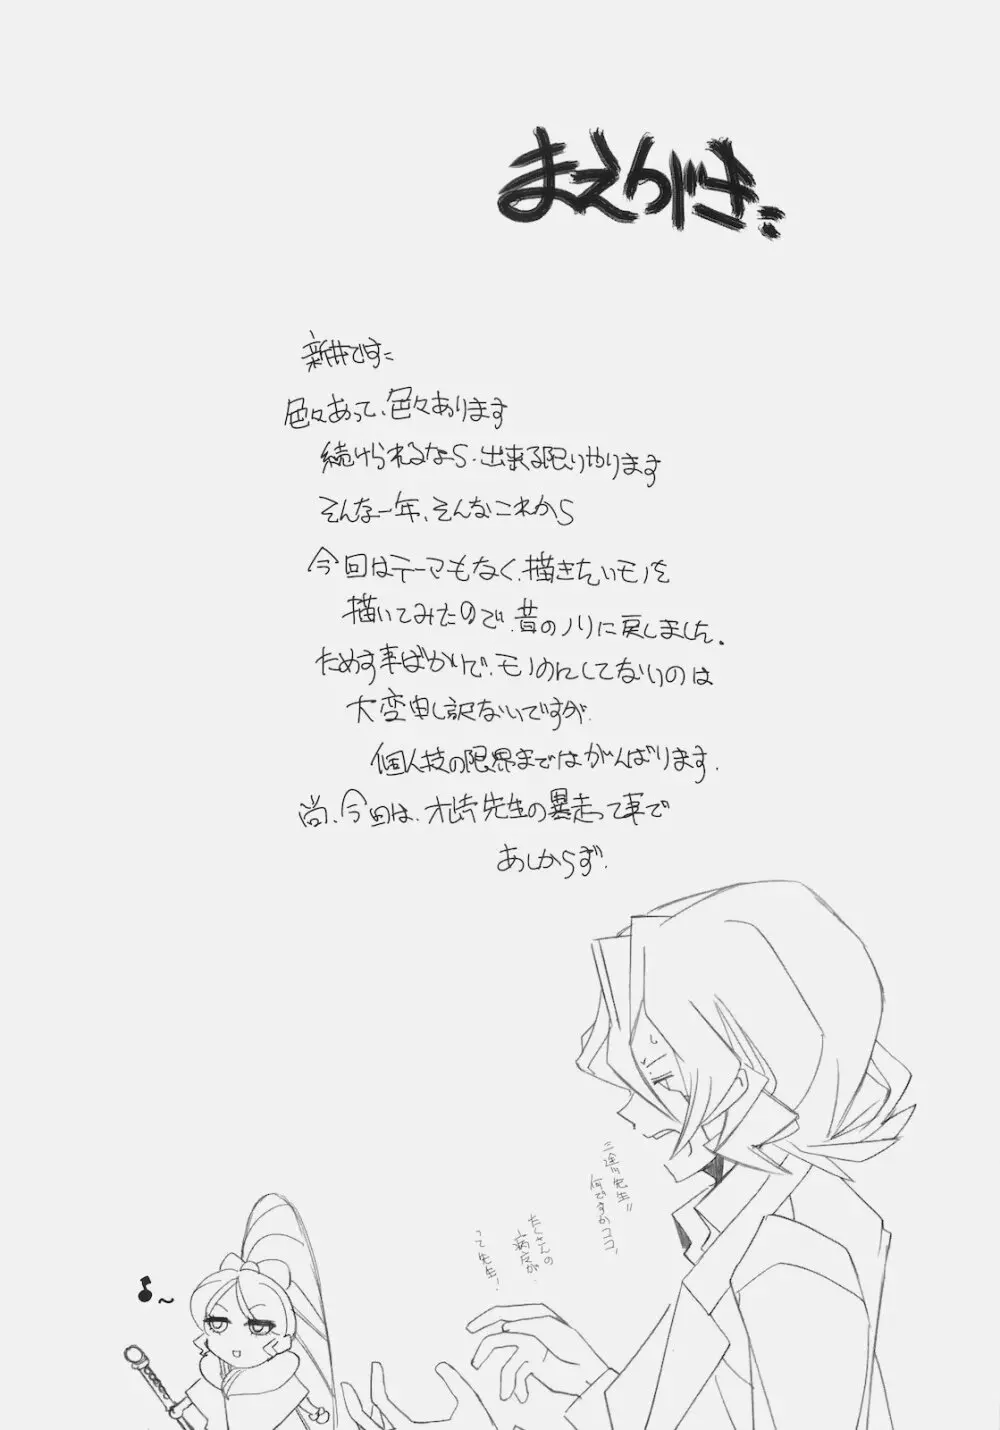 まえがき
新井です
色々あって、色々あります
続けられるなら、出来る限りやります
そんな一年、そんなこれから
今回はテーマもなく、描きたいモノを
描いてみたので、昔のノリに戻しました。
ためす事ばかりで、モノにしてないのは
大変申し訳ないですが、
個人技の限界まではがんばります。
尚、今回は、先生の暴走って事で
あしからず。
三途川先生!!
何ですかココ、
たくさんの
って先生!